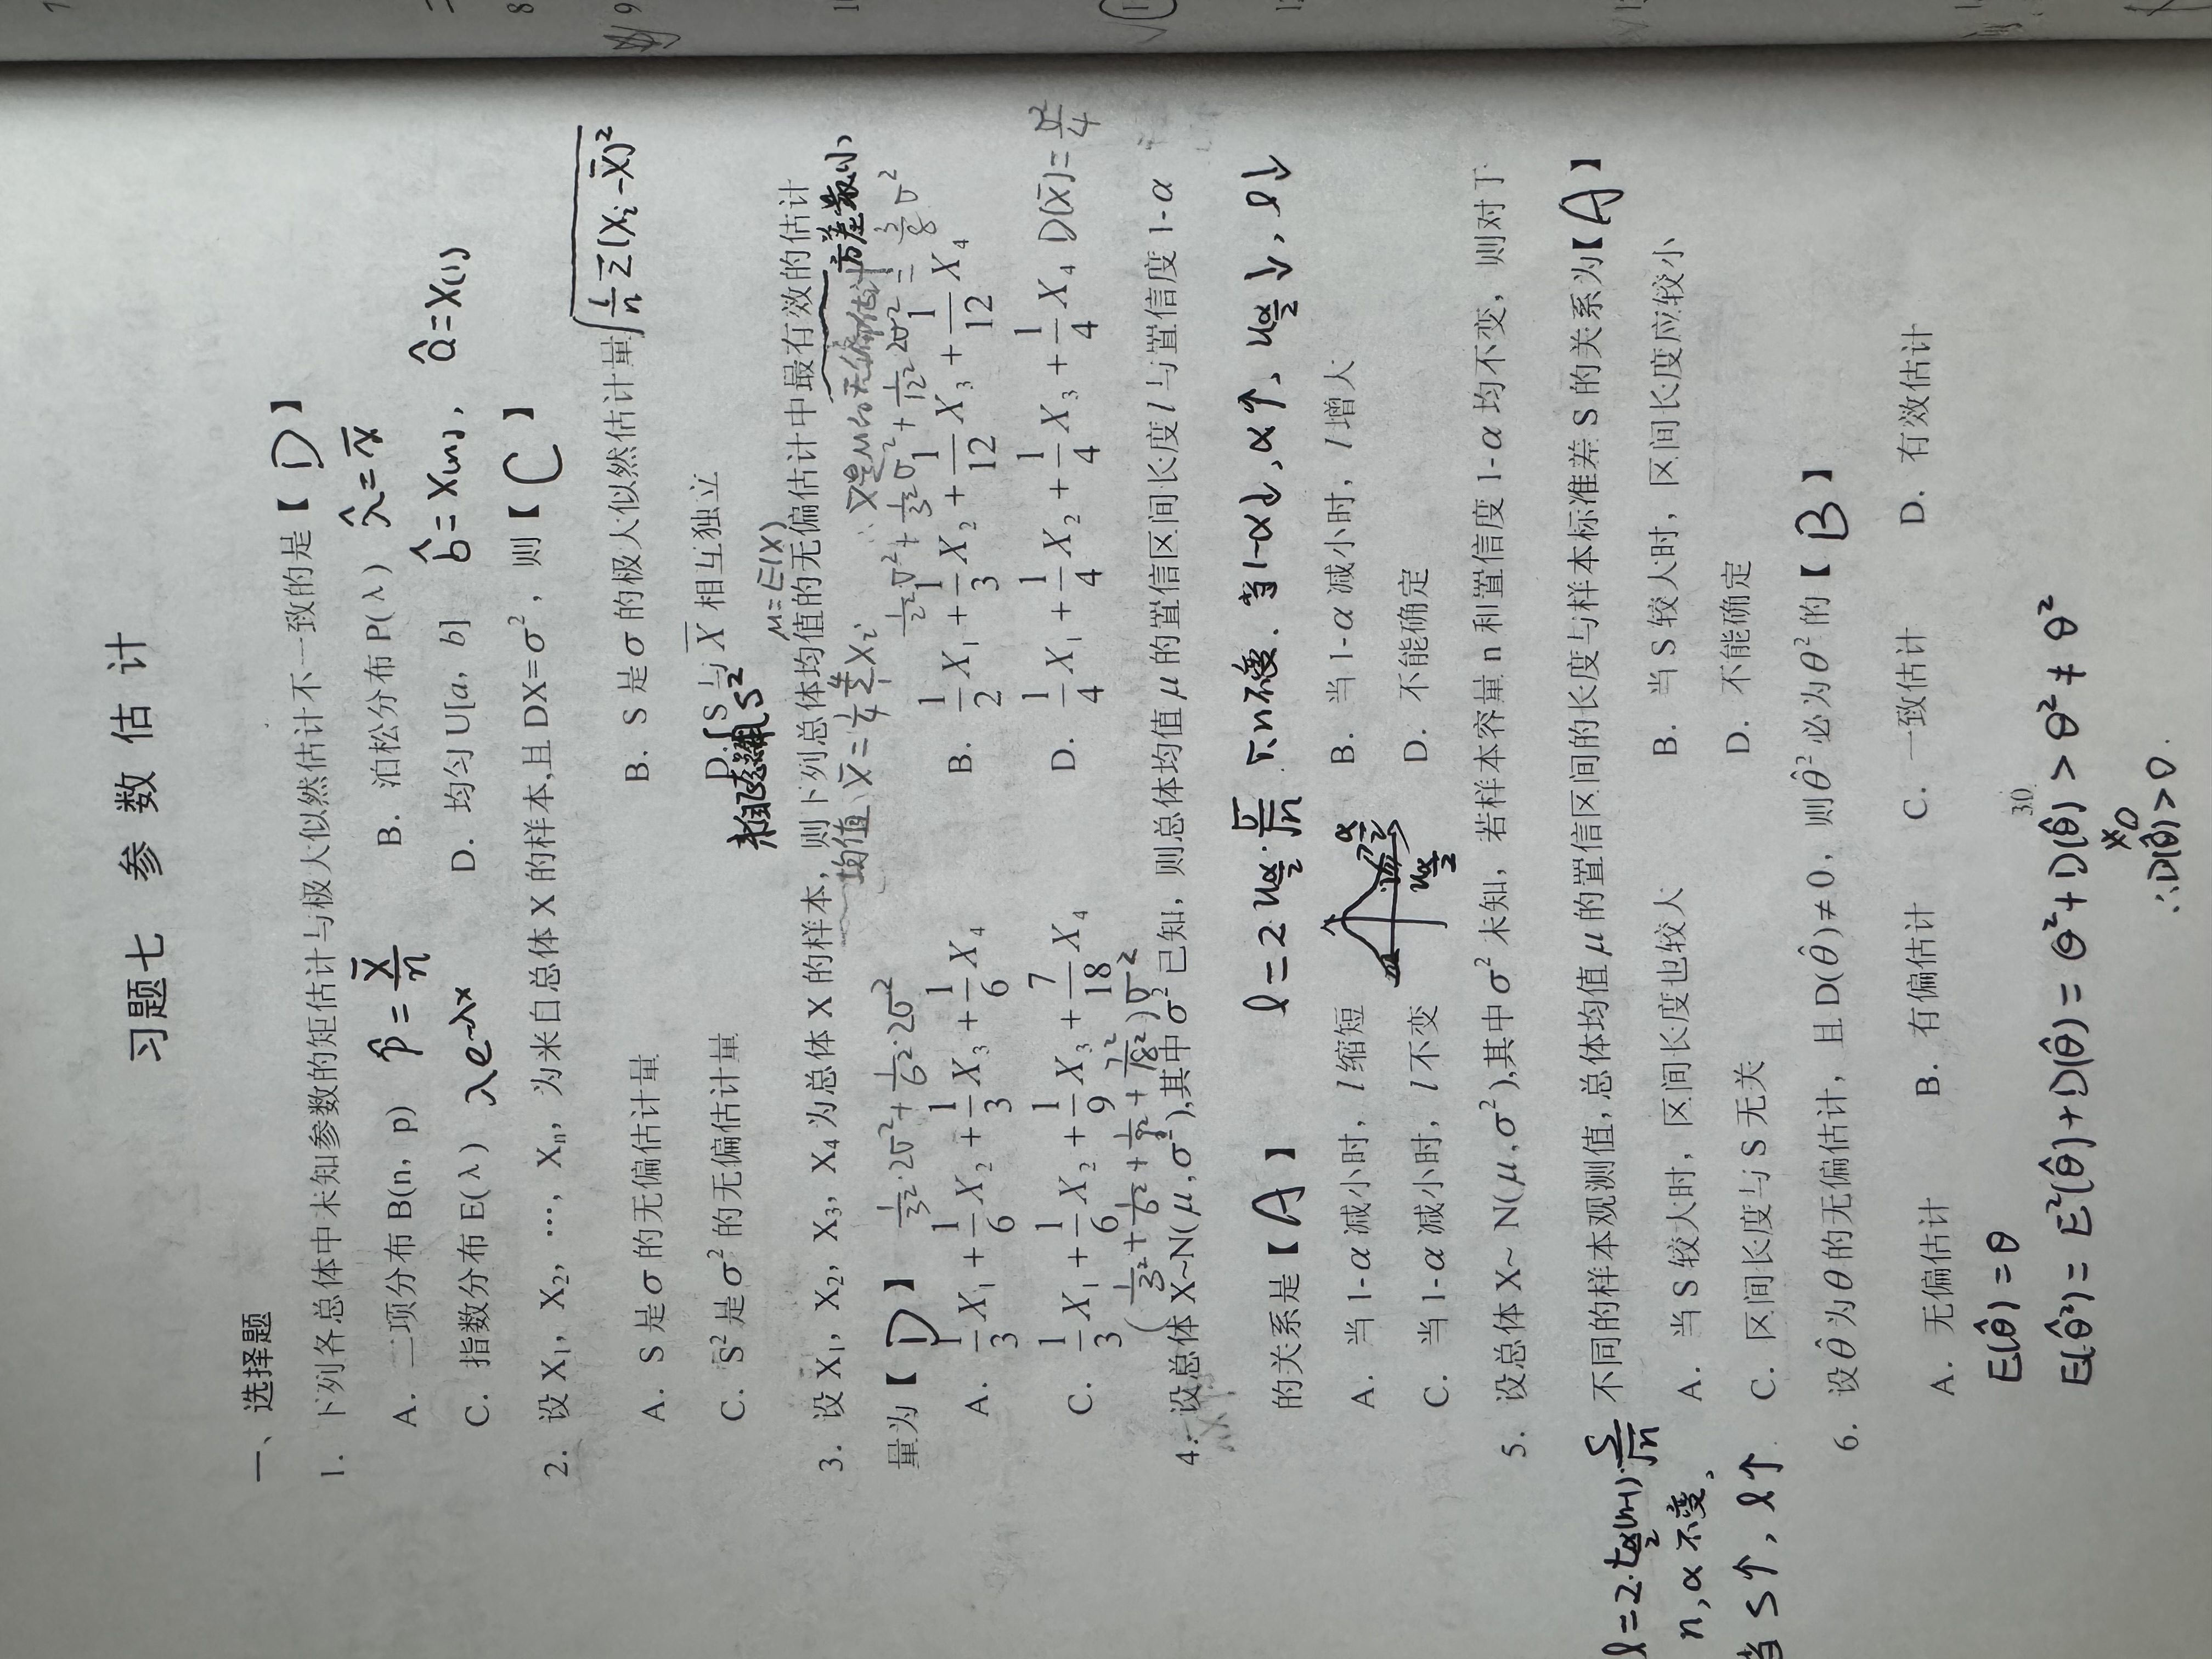 习题七 参数估计
一、选择题
1. 下列各总体中未知参数的矩估计与极大似然估计不一致的是【 D 】
A. 二项分布 B(n, p) p̂ = X̄/n B. 泊松分布 P(λ) λ̂ = x̄
C. 指数分布 E(λ) λe^{-λx} D. 均匀 U[a, b] b̂ = X(n), â = X(1)
2. 设 X₁, X₂, …, Xₙ, 为来自总体 X 的样本,且 DX=σ², 则【 C 】
A. S 是 σ 的无偏估计量 B. S 是 σ 的极大似然估计量 √(1/n Σ(Xᵢ-X̄)²)
C. S² 是 σ² 的无偏估计量 D. S 与 X̄ 相互独立
来自正态总体 S²
μ=E(X)
3. 设 X₁, X₂, X₃, X₄ 为总体 X 的样本, 则下列总体均值的无偏估计中最有效的估计
均值 X̄ = 1/4 Σ Xᵢ ∴ X̄是μ的无偏估计 方差最小
量为【 D 】 1/3²·2σ² + 1/6²·2σ² 1/2²σ² + 1/3²σ² + 1/12² 2σ² = 3/8 σ²
A. 1/3 X₁ + 1/6 X₂ + 1/3 X₃ + 1/6 X₄ B. 1/2 X₁ + 1/3 X₂ + 1/12 X₃ + 1/12 X₄
C. 1/3 X₁ + 1/6 X₂ + 1/9 X₃ + 7/18 X₄ D. 1/4 X₁ + 1/4 X₂ + 1/4 X₃ + 1/4 X₄ D(X̄) = σ²/4
(1/3² + 1/6² + 1/9² + 7²/18²)σ²
4. 设总体 X~N(μ,σ²),其中 σ² 已知, 则总体均值 μ 的置信区间长度 l 与置信度 1-α
的关系是【 A 】 l = 2·u_{α/2}·σ/√n σ,n不变. 当1-α↓, α↑, u_{α/2}↓, l↓
A. 当 1-α 减小时, l 缩短 α/2 B. 当 1-α 减小时, l 增大
C. 当 1-α 减小时, l 不变 u_{α/2} D. 不能确定
5. 设总体 X~ N(μ,σ²),其中 σ² 未知, 若样本容量 n 和置信度 1-α 均不变, 则对于
不同的样本观测值, 总体均值 μ 的置信区间的长度与样本标准差 S 的关系为【 A 】
l = 2·t_{α/2}(n-1)·S/√n
A. 当 S 较大时, 区间长度也较大 B. 当 S 较大时, 区间长度应较小
n, α 不变,
C. 区间长度与 S 无关 D. 不能确定
当 S↑, l↑
6. 设 θ̂ 为 θ 的无偏估计, 且 D(θ̂)≠0, 则 θ̂² 必为 θ² 的【 B 】
A. 无偏估计 B. 有偏估计 C. 一致估计 D. 有效估计
E(θ̂) = θ
30
E(θ̂²) = E²(θ̂) + D(θ̂) = θ² + D(θ̂) > θ² ≠ θ²
≠0
∴D(θ̂)>0.